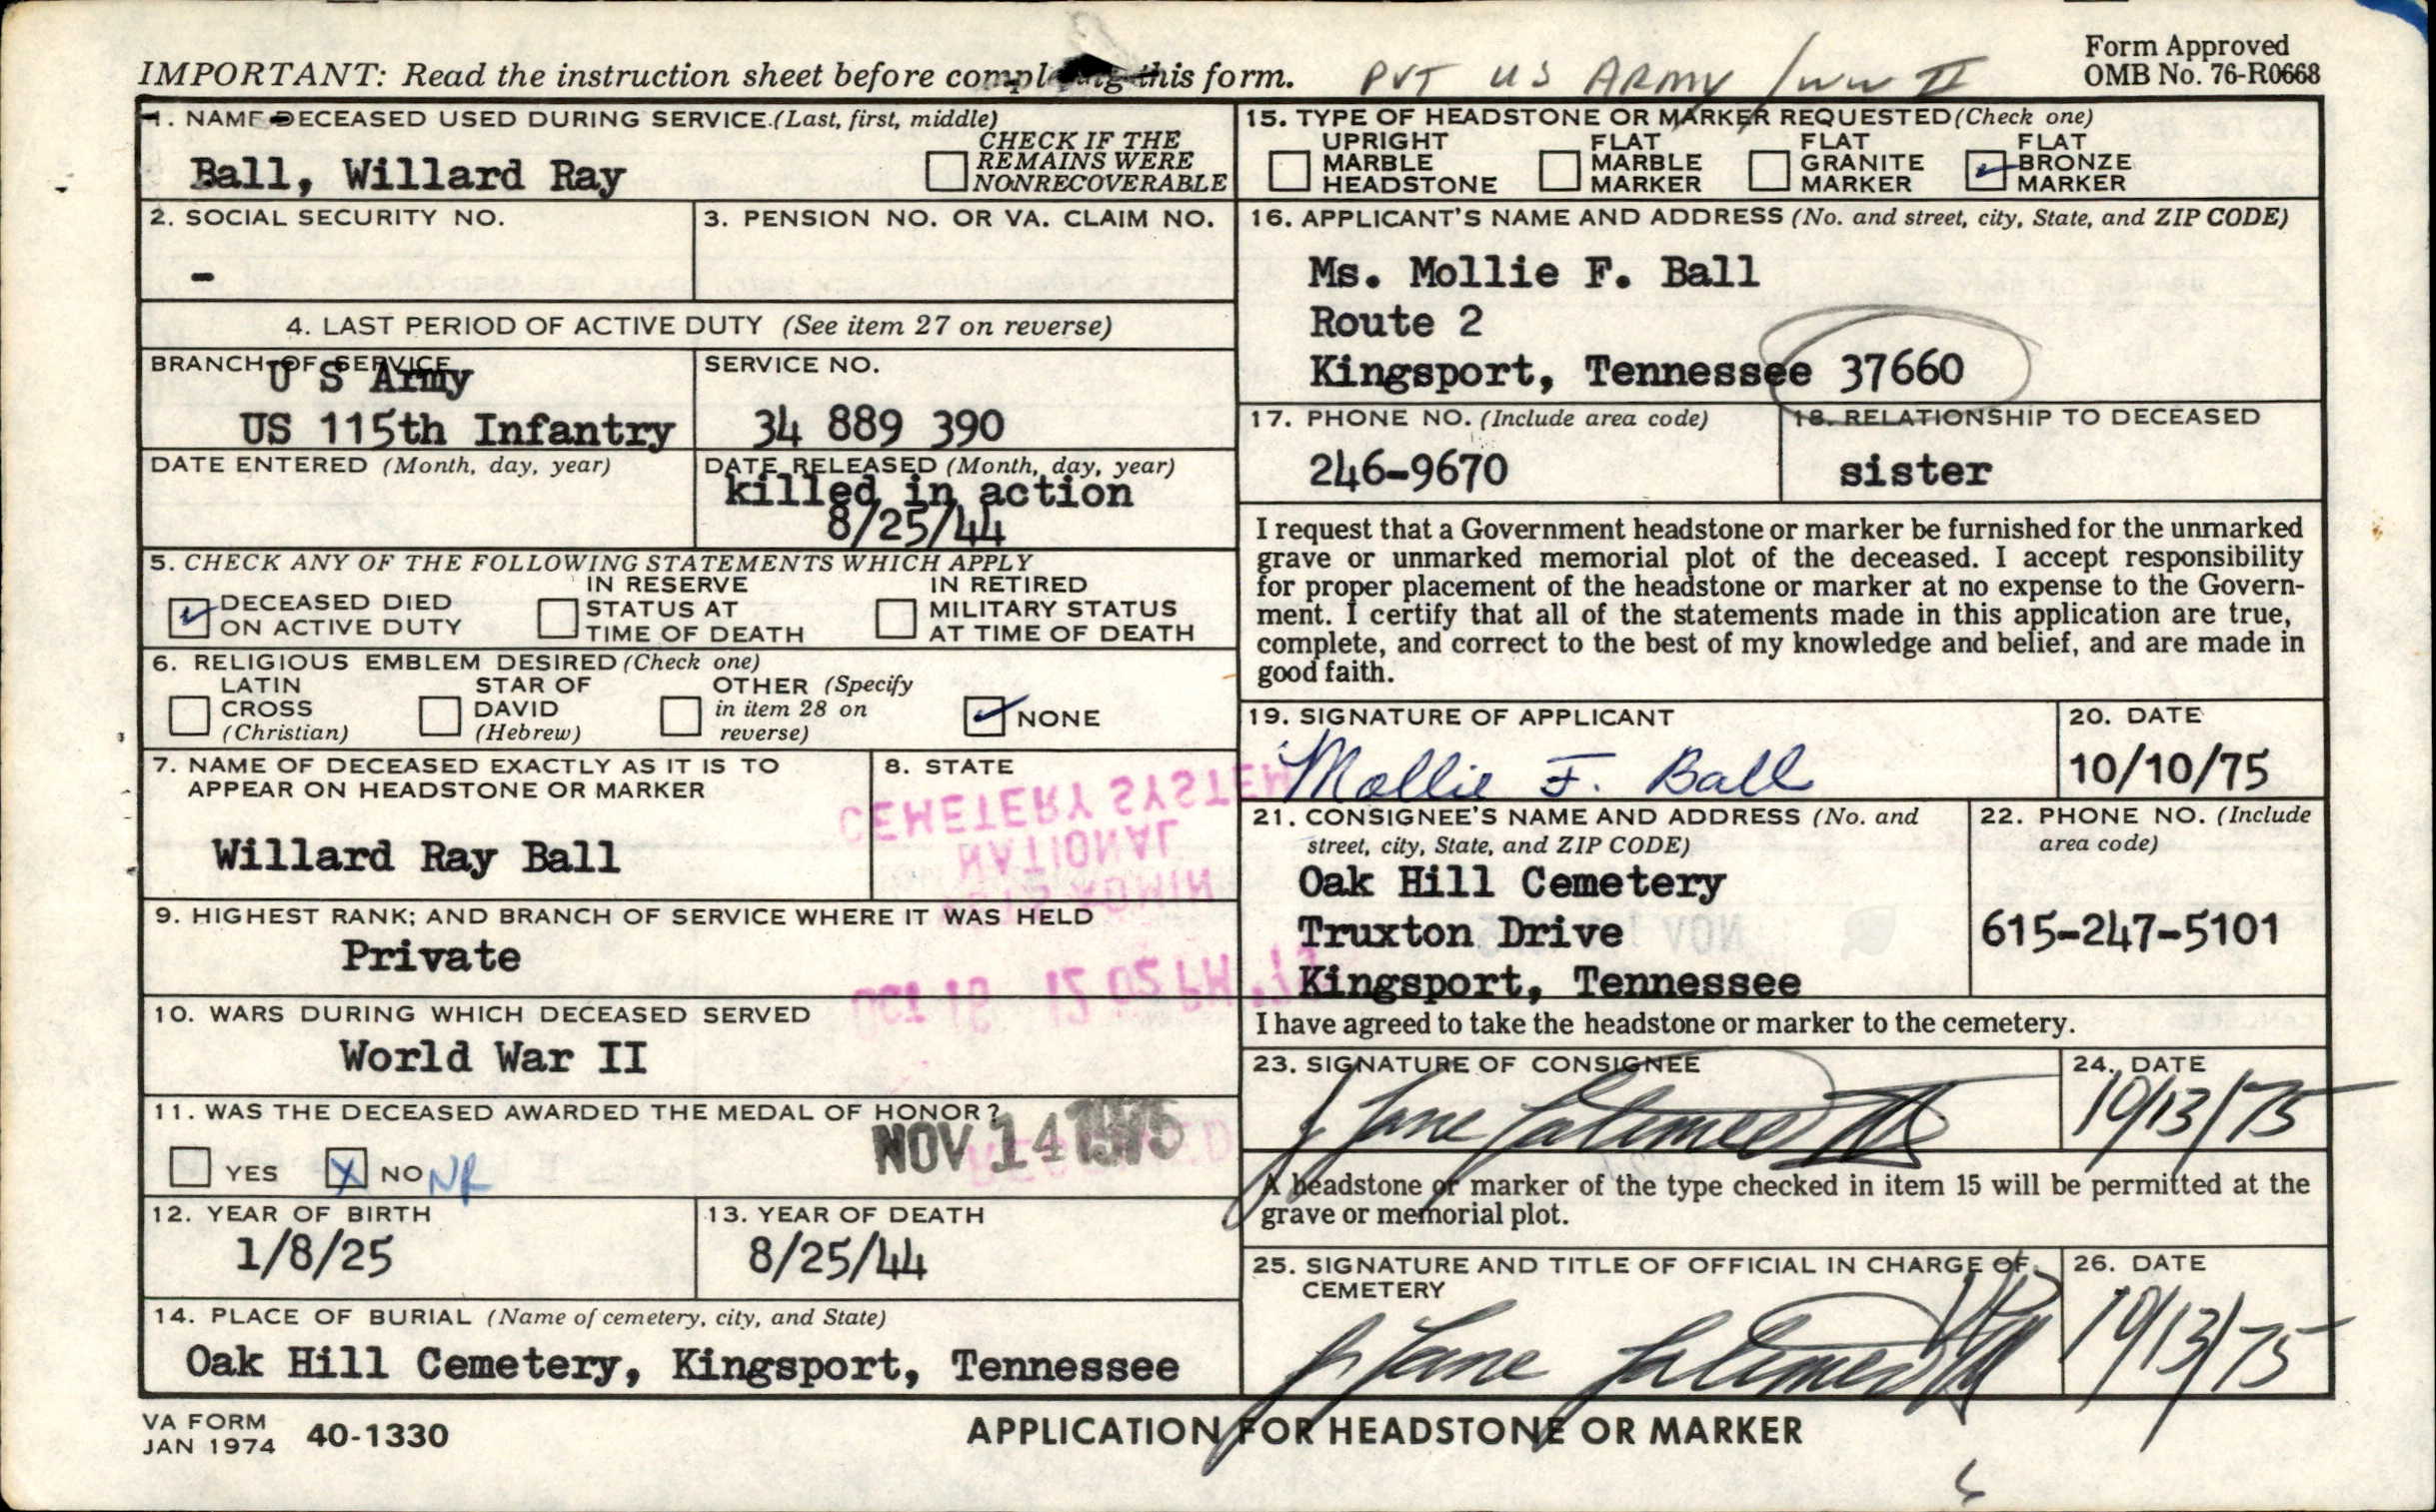 IMPORTANT: Read the instruction sheet before completing this form.
PVT US ARMY / WW II
Form Approved
OMB No. 76-R0668
1. NAME DECEASED USED DURING SERVICE (Last, first, middle)
Ball, Willard Ray
CHECK IF THE
REMAINS WERE
NONRECOVERABLE
2. SOCIAL SECURITY NO.
-
3. PENSION NO. OR VA. CLAIM NO.
4. LAST PERIOD OF ACTIVE DUTY (See item 27 on reverse)
BRANCH OF SERVICE
U S Army
US 115th Infantry
SERVICE NO.
34 889 390
DATE ENTERED (Month, day, year)
DATE RELEASED (Month, day, year)
killed in action
8/25/44
5. CHECK ANY OF THE FOLLOWING STATEMENTS WHICH APPLY
DECEASED DIED
ON ACTIVE DUTY
IN RESERVE
STATUS AT
TIME OF DEATH
IN RETIRED
MILITARY STATUS
AT TIME OF DEATH
6. RELIGIOUS EMBLEM DESIRED (Check one)
LATIN
CROSS
(Christian)
STAR OF
DAVID
(Hebrew)
OTHER (Specify
in item 28 on
reverse)
NONE
7. NAME OF DECEASED EXACTLY AS IT IS TO
APPEAR ON HEADSTONE OR MARKER
Willard Ray Ball
8. STATE
CEMETERY SYSTEM
NATIONAL
9. HIGHEST RANK; AND BRANCH OF SERVICE WHERE IT WAS HELD
Private
10. WARS DURING WHICH DECEASED SERVED
World War II
11. WAS THE DECEASED AWARDED THE MEDAL OF HONOR?
YES
X NO NR
NOV 14 1975
12. YEAR OF BIRTH
1/8/25
13. YEAR OF DEATH
8/25/44
14. PLACE OF BURIAL (Name of cemetery, city, and State)
Oak Hill Cemetery, Kingsport, Tennessee
15. TYPE OF HEADSTONE OR MARKER REQUESTED (Check one)
UPRIGHT
MARBLE
HEADSTONE
FLAT
MARBLE
MARKER
FLAT
GRANITE
MARKER
FLAT
BRONZE
MARKER
16. APPLICANT'S NAME AND ADDRESS (No. and street, city, State, and ZIP CODE)
Ms. Mollie F. Ball
Route 2
Kingsport, Tennessee 37660
17. PHONE NO. (Include area code)
246-9670
18. RELATIONSHIP TO DECEASED
sister
I request that a Government headstone or marker be furnished for the unmarked
grave or unmarked memorial plot of the deceased. I accept responsibility
for proper placement of the headstone or marker at no expense to the Govern-
ment. I certify that all of the statements made in this application are true,
complete, and correct to the best of my knowledge and belief, and are made in
good faith.
19. SIGNATURE OF APPLICANT
Mollie F. Ball
20. DATE
10/10/75
21. CONSIGNEE'S NAME AND ADDRESS (No. and
street, city, State, and ZIP CODE)
Oak Hill Cemetery
Truxton Drive
Kingsport, Tennessee
22. PHONE NO. (Include
area code)
615-247-5101
I have agreed to take the headstone or marker to the cemetery.
23. SIGNATURE OF CONSIGNEE
24. DATE
10/13/75
A headstone or marker of the type checked in item 15 will be permitted at the
grave or memorial plot.
25. SIGNATURE AND TITLE OF OFFICIAL IN CHARGE OF
CEMETERY
26. DATE
10/13/75
VA FORM
JAN 1974 40-1330
APPLICATION FOR HEADSTONE OR MARKER